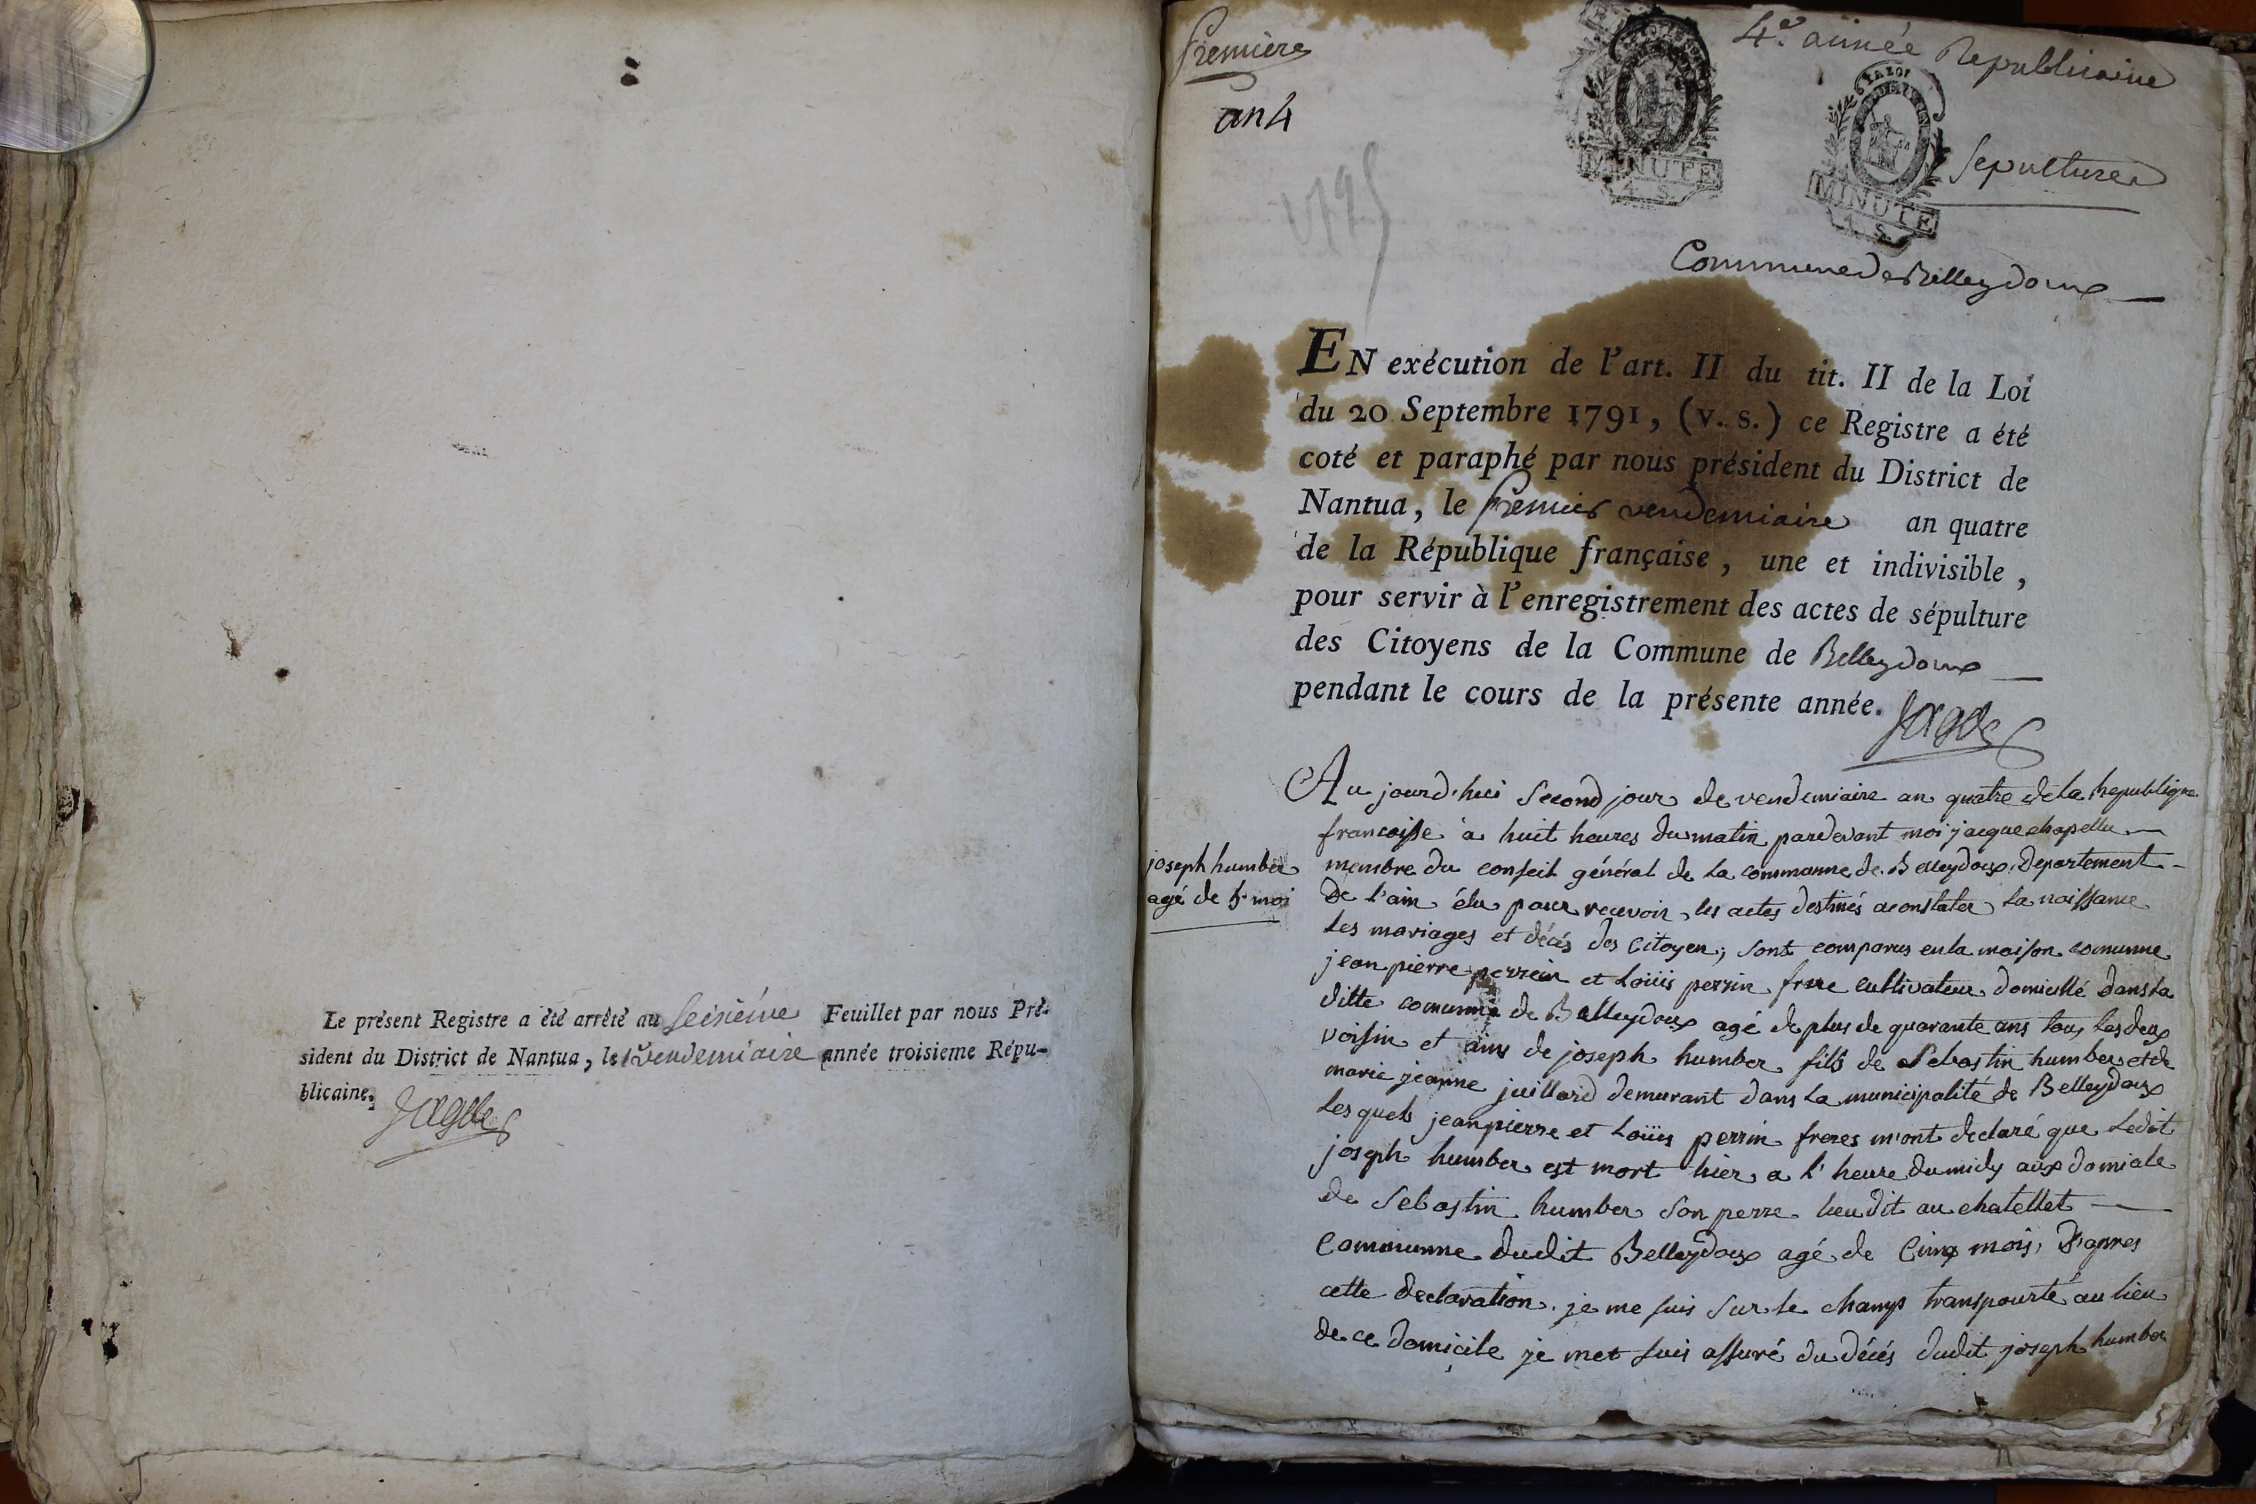 Le présent Registre a été arrêté au seisiéme Feuillet par nous Pré-
sident du District de Nantua, le 1er vendemiaire année troisieme Répu-
blicaine.
premiere
4e. année Republicaine
an 4
LA LOI
MINUTE
4. S.
MINUTE
4. S.
Sepultures
1795
Commune de Belleydoux
EN exécution de l'art. II du tit. II de la Loi
du 20 Septembre 1791, (v. s.) ce Registre a été
coté et paraphé par nous président du District de
Nantua, le premier vendemiaire an quatre
de la République française, une et indivisible,
pour servir à l'enregistrement des actes de sépulture
des Citoyens de la Commune de Belleydoux
pendant le cours de la présente année.
Au jourd'hui second jour de vendemiaire an quatre de la republique
francoisse a huit heures du matin pardevant moi jacque chapellu
joseph humber
agé de 5 moi
membre du conseil général de la commanne de Belleydoux, departement
De l'ain élu pour recevoir les actes destinés aconstater la naissance
les mariages et décés des citoyen, sont comparus en la maison comunne
jean pierre perrin et Loüis perrin frere cultivateur domicillé dans la
ditte comunne de Belleydoux agé de plus de quarante ans tous les deux
voisin et ami de joseph humber fils de Sebastin humber et de
marie jeanne juillard demurant dans la municipalité de Belleydoux
lesquels jean pierre et Loüis perrin freres m'ont declaré que ledit
joseph humber est mort hier a l'heure du midy aux domicile
de Sebastin humber son perre lieu dit au chatellet
communne dudit Belleydoux agé de cinq mois, D'apres
cette declaration, je me suis sur le champ transpourté au lieu
de ce domicile je met suis assuré du décés dudit joseph humber